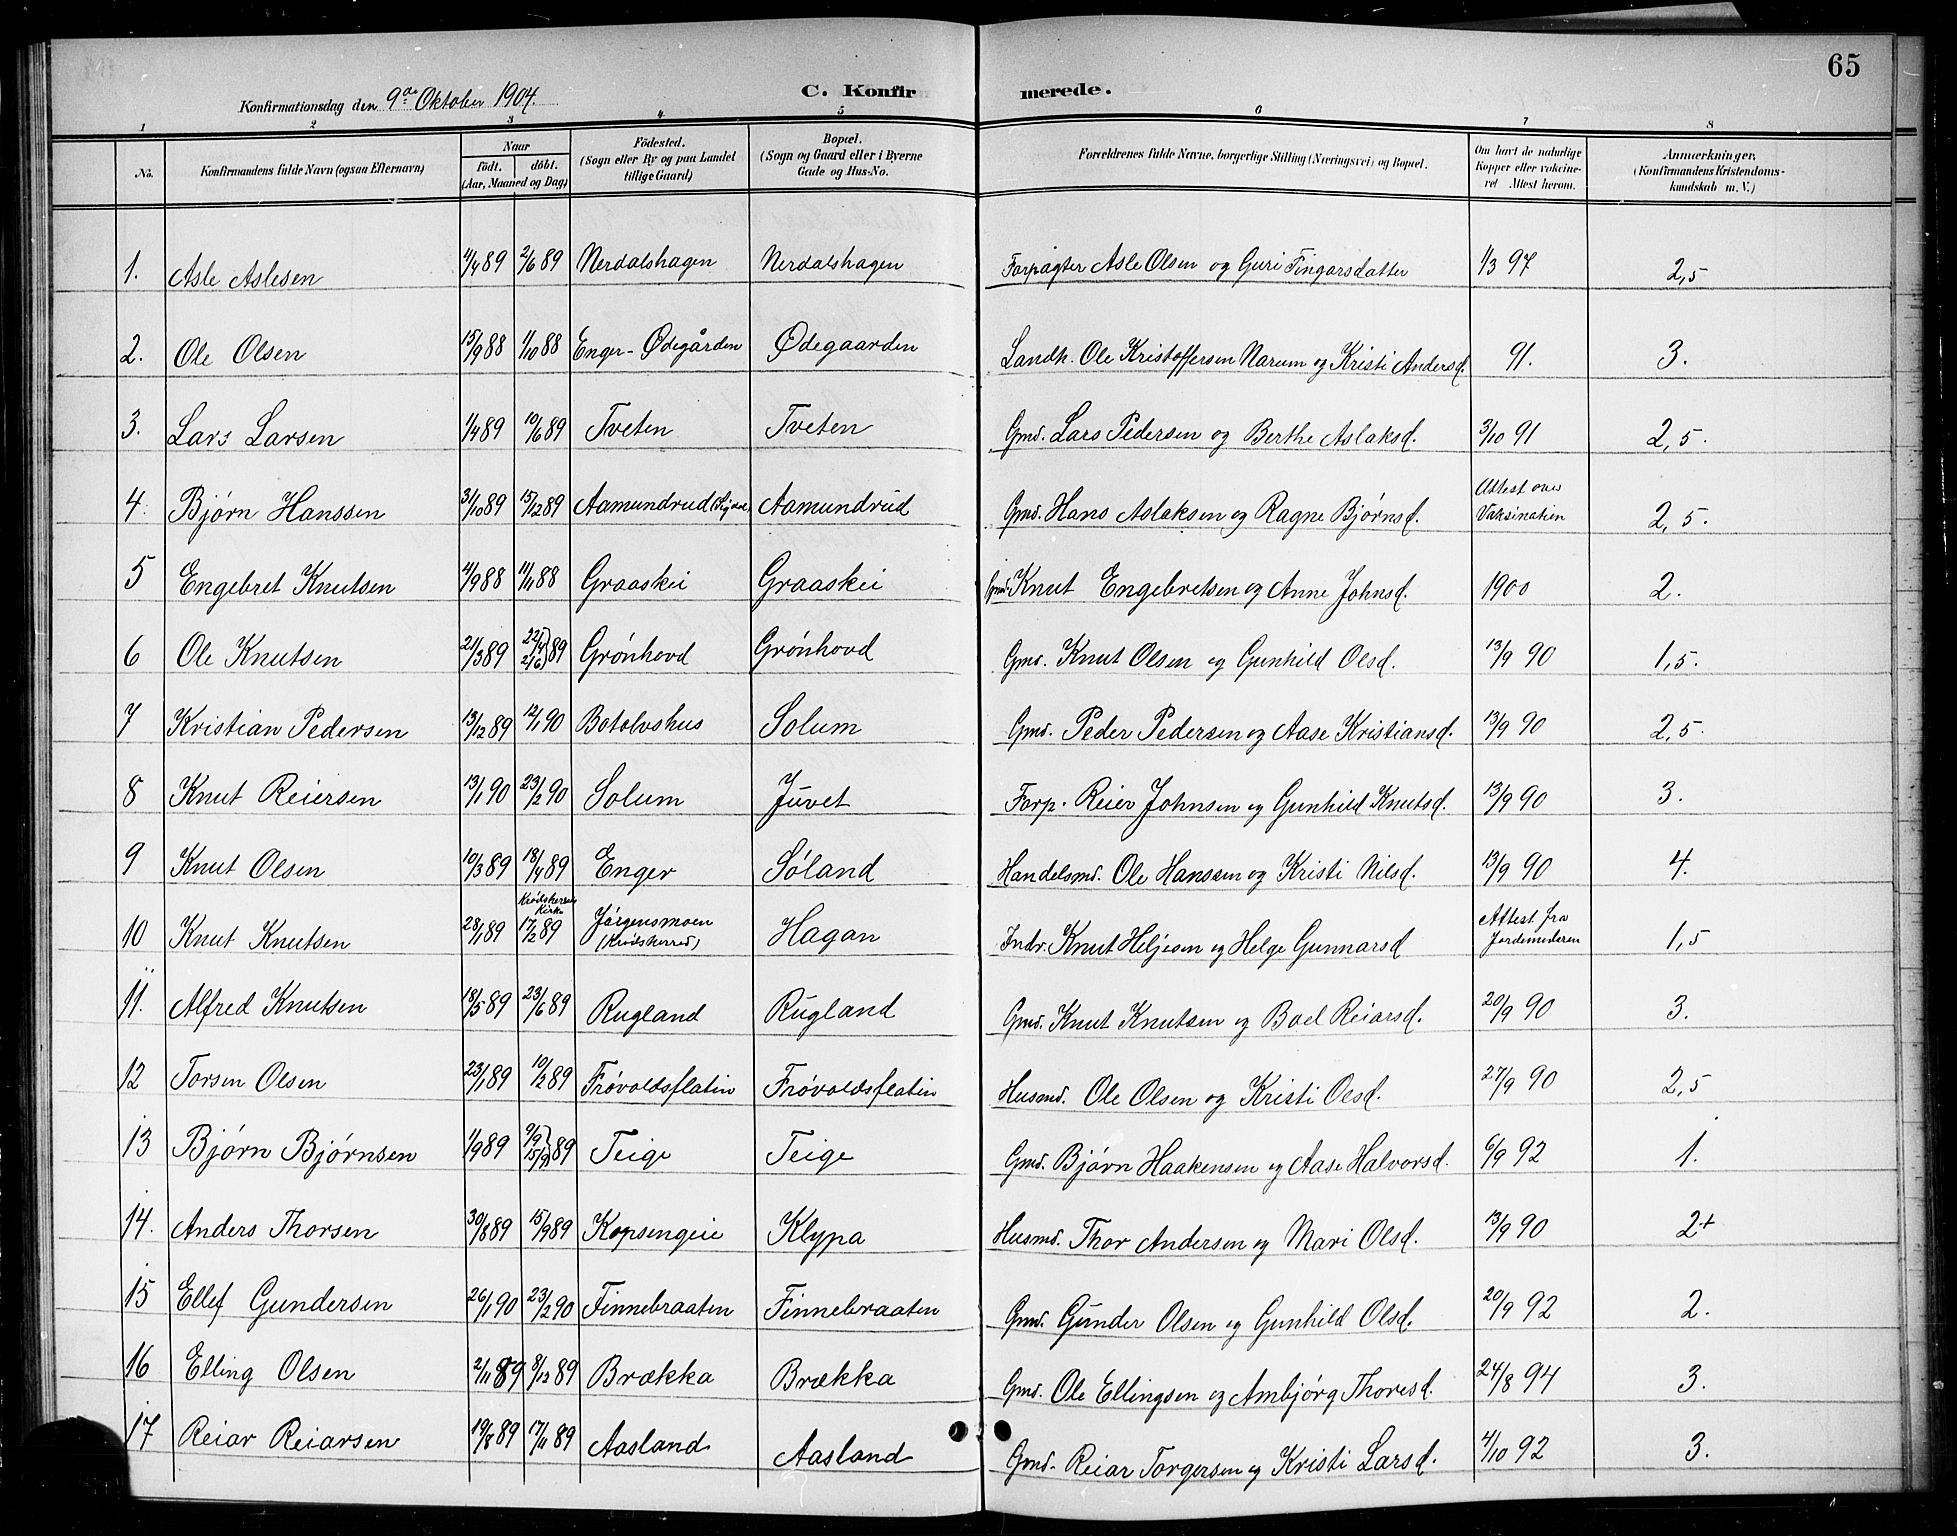 65
Konfirmationsdag den 9de Oktober 1904. C. Konfirmerede.
1 2 3 4 5 6 7 8
No. Konfirmandens fulde Navn (ogsaa Efternavn) Naar født. døbt. (Aar, Maaned og Dag) Fødested. (Sogn eller By og paa Landet tillige Gaard) Bopæl. (Sogn og Gaard eller i Byerne Gade og Hus-No. Forældrenes fulde Navne, borgerlige Stilling (Næringsvei) og Bopæl. Om havt de naturlige Kopper eller vakcineret Attest herom. Anmærkninger. (Konfirmandens Kristendomskundskab m. V.)
1. Asle Aslesen 4/4 89 2/6 89 Nerdalshagen Nerdalshagen Forpagter Asle Olsen og Guri Fingarsdatter 1/3 97 2,5
2. Ole Olsen 15/9 88 1/10 88 Enger-Ødegården Ødegaarden Landh. Ole Kristoffersen Narum og Kristi Andersd. 91. 3.
3. Lars Larsen 1/4 89 10/6 89 Tveten Tveten Gmd. Lars Pedersen og Berthe Aslaksd. 3/10 91 2,5.
4. Bjørn Hanssen 31/10 89 15/12 89 Aamundrud (Sigdal) Aamundrud Gmd. Hans Aslaksen og Ragne Bjørnsd. Attest over Vaksination 2,5.
5 Engebret Knutsen 4/9 88 11/11 88 Graaskei Graaskei Gmd. Knut Engebretsen og Anne Johnsd. 1900 2.
6 Ole Knutsen 21/3 89 22/4 2/6 89 Grønhovd Grønhovd Gmd. Knut Olsen og Gunhild Olsd. 13/9 90 1,5.
7 Kristian Pedersen 13/12 89 12/1 90 Botolvshus Solum Gmd. Peder Pedersen og Aase Kristiansd. 13/9 90 2,5.
8 Knut Reiersen 13/1 90 23/2 90 Solum Juvet Forp. Reier Johnsen og Gunhild Knutsd. 13/9 90 3.
9 Knut Olsen 10/3 89 18/4 89 Enger Søland Handelsmd. Ole Hanssen og Kristi Nilsd. 13/9 90 4.
10 Knut Knutsen 28/1 89 Krødsherred Kirke 17/2 89 Jørgensmoen (Krødsherred) Hagan Indr. Knut Heljesen og Helge Gunnarsd Attest fra Jordemoderen 1,5
11. Alfred Knutsen 18/5 89 23/6 89 Rugland Rugland Gmd. Knut Knutsen og Boel Reiarsd. 20/9 90 3.
12 Torsen Olsen 23/1 89 10/2 89 Frøvoldsflatin Frøvoldsflatin Husmd. Ole Olsen og Kristi Olsd. 27/9 90 2,5
13 Bjørn Bjørnsen 1/9 89 9/9 15/9 89 Teige Teige Gmd. Bjørn Haakensen og Aase Halvorsd. 6/9 92 1.
14. Anders Thorsen 30/8 89 15/9 89 Kopsengeie Klypa Husmd. Thor Andersen og Mari Olsd. 13/9 90 2+
15 Ellef Gundersen 26/1 90 23/2 90 Finnebraaten Finnebraaten Gmd. Gunder Olsen og Gunhild Olsd. 20/9 92 2.
16 Elling Olsen 2/11 89 8/12 89 Brækka Brækka Gmd. Ole Ellingsen og Ambjørg Thoresd. 24/8 94 3.
17 Reiar Reiarsen 19/8 89 17/11 89 Aasland Aasland Gmd. Reiar Torgersen og Kristi Larsd. 4/10 92 3.